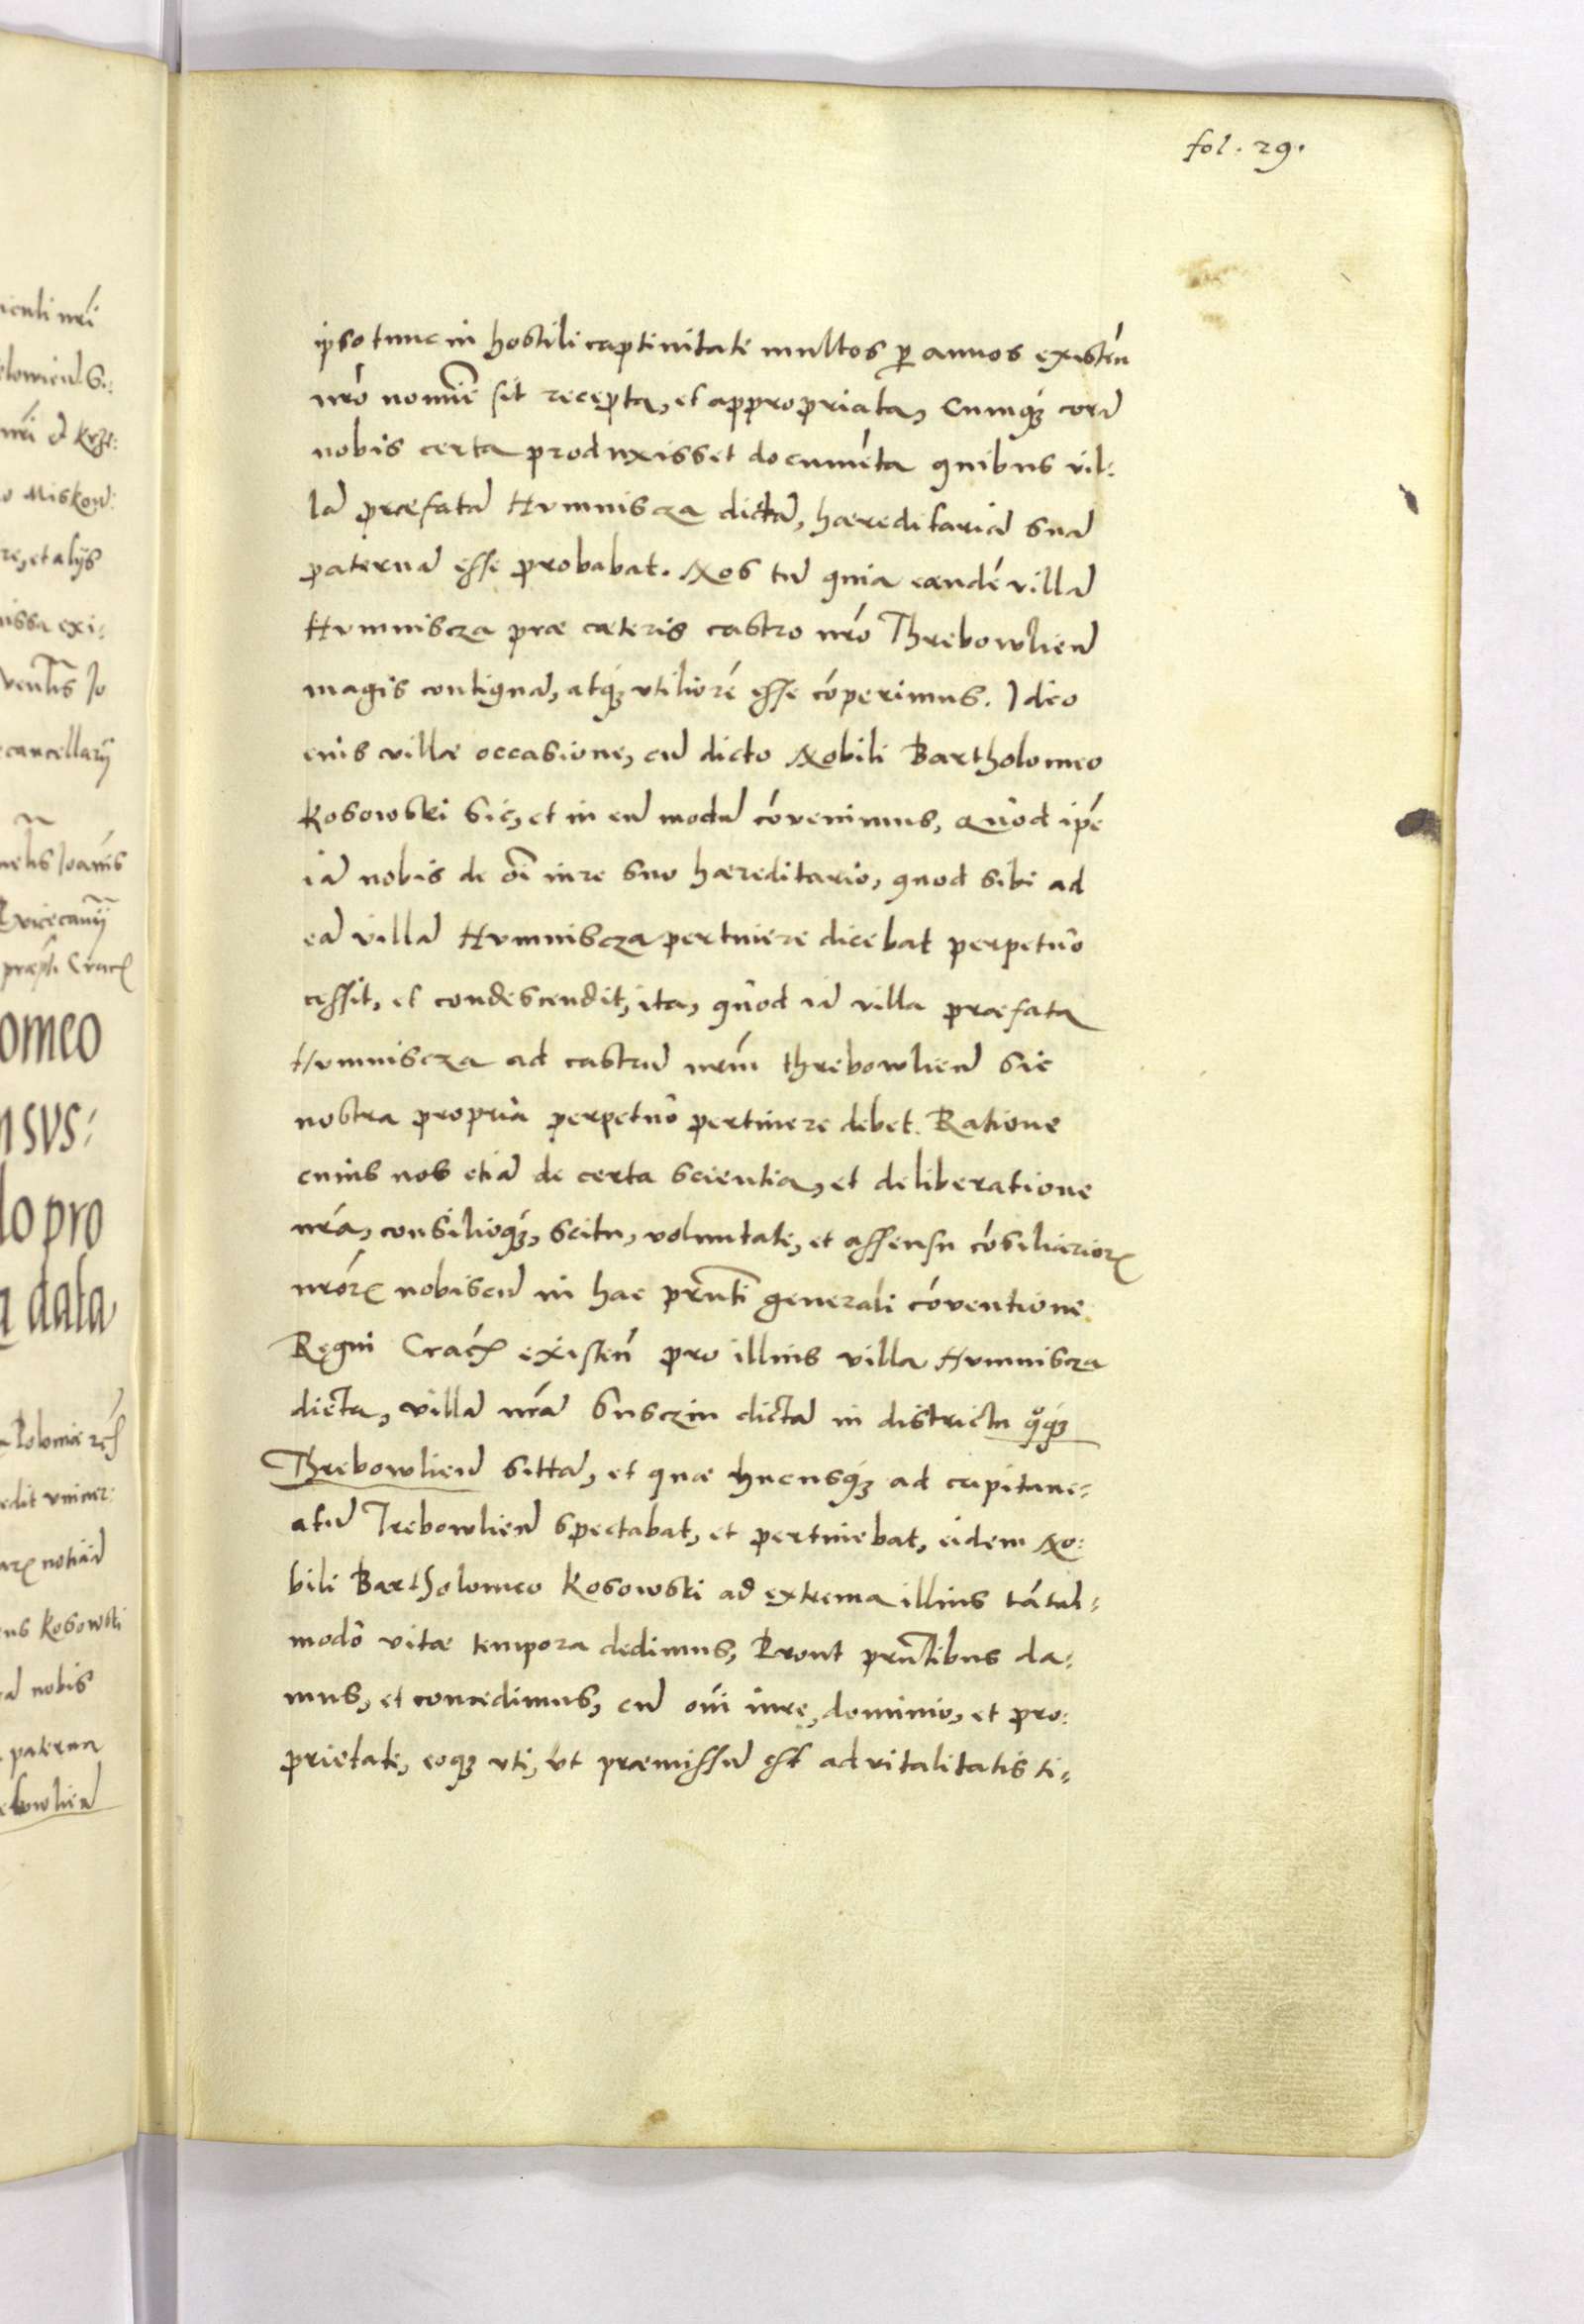 fol. 29.
ipso tunc in hostili captiuitate multos p annos existen
nro nomie sit recepta, et appropriata, Cumq3 cora
nobis certa produxisset documeta quibus vil:
la præfata Humniscza dicta, hæreditaria sua
paterna esse probabat. Nos tu quia eande villa
Humniscza præ cæteris castro nro Threbowlien
magis contigua, atq3 vtiliore esse coperimus. Ideo
euis villæ occasione, cu dicto Nobili Bartholomeo
Kosowski sic, et in eu modu covenimus, Quod ipe
ia nobis de oi iure suo hæreditario, quod sibi ad
ea villa Humniscza pertinere dicebat perpetuo
cessit, et condescendit, ita, quod ia villa præfata
Humniscza ad castru nrm threbowlien sic
nostra propria perpetuo pertinere debet. Ratione
cuius nos etia de certa scientia, et deliberatione
nra, consilioq3, scitu, voluntate, et assensu cosiliarior
nror nobiscu in hac prnti generali coventione
Regni Crac existen pro illius villa Humniscza
dicta, villa nra Susczin dicta in districtu qoq3
Threbowlien sitta, et quæ hucusq3 ad capitane=
atu Trebowlien spectabat, et pertinebat, eidem No:
bili Bartholomeo Kosowski ad extrema illius tatu=
modo vitæ tempora dedimus, Prout prntibus da:
mus, et concedimus, cu oni iure, dominio, et pro:
prietate, eoq3 vti, vt præmissu est advitalitatis ti=
iculi nri
re, et alijs
issa exi:
cancellarij
omeo
nsus:
lo pro
data
Kosowski
nobis
paterna